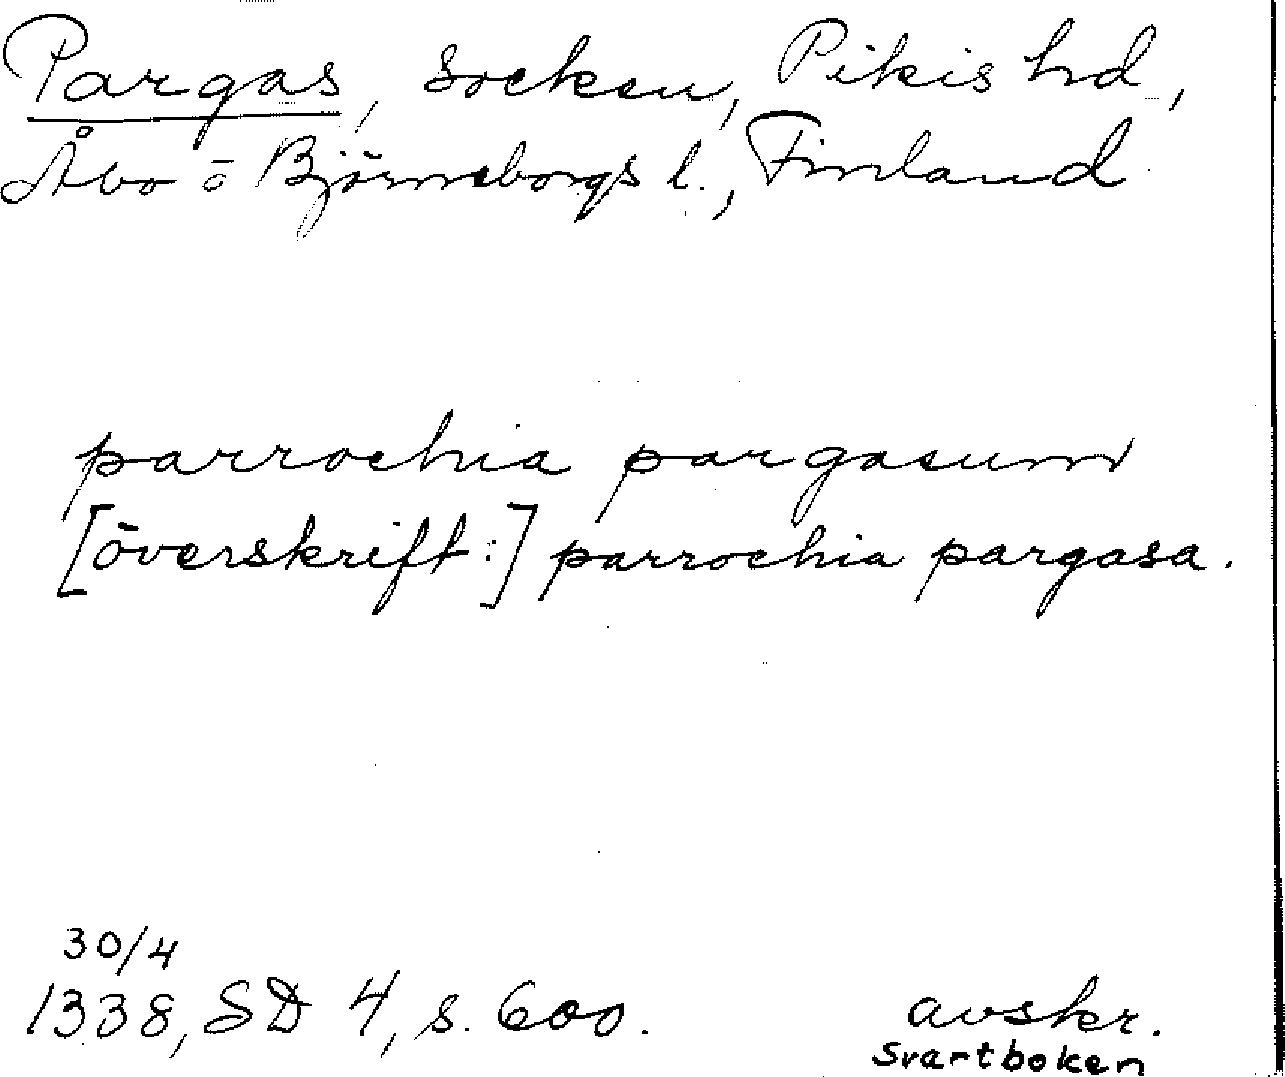 Pargas, socken, Pikis hd,
Åbo o Björneborgs l., Finland
parrochia pargasum
[överskrift:] parrochia pargasa.
30/4
1338, SD 4, s. 600.
avskr.
Svartboken